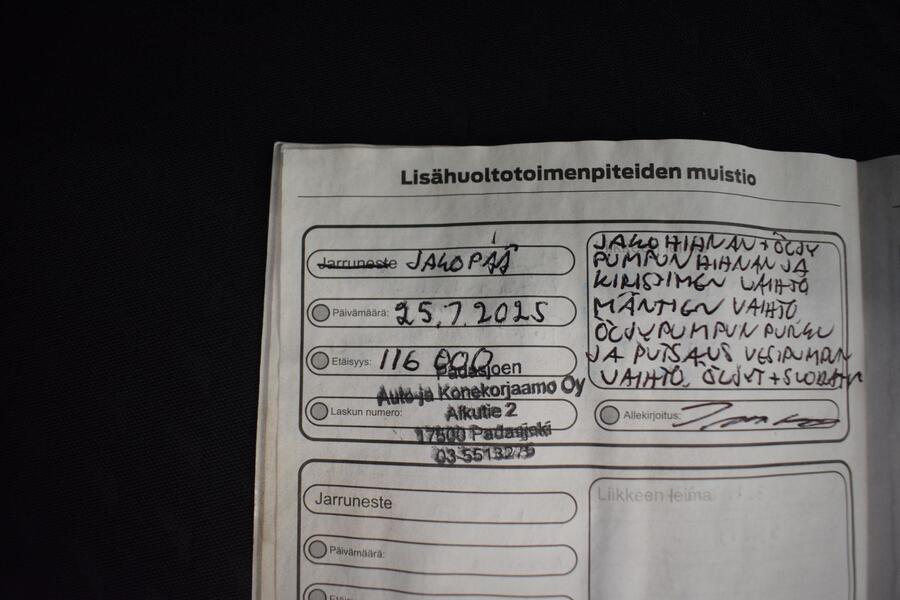 Lisähuoltotoimenpiteiden muistio
Jarruneste JAKOPÄÄ
Päivämäärä: 25.7.2025
Etäisyys: 116 000
Laskun numero:
Padasjoen
Auto ja Konekorjaamo Oy
Alkutie 2
17500 Padasjoki
03-5513275
JAKOHIHNAN + ÖLJY
PUMPUN HIHNAN JA
KIRISTIMEN VAIHTO
MÄNTIEN VAIHTO
ÖLJYPUMPUN PURKU
JA PUTSAUS VESIPUMPUN
VAIHTO. ÖLJYT + SUODATIN
Allekirjoitus:
Jarruneste
Liikkeen leima
Päivämäärä: